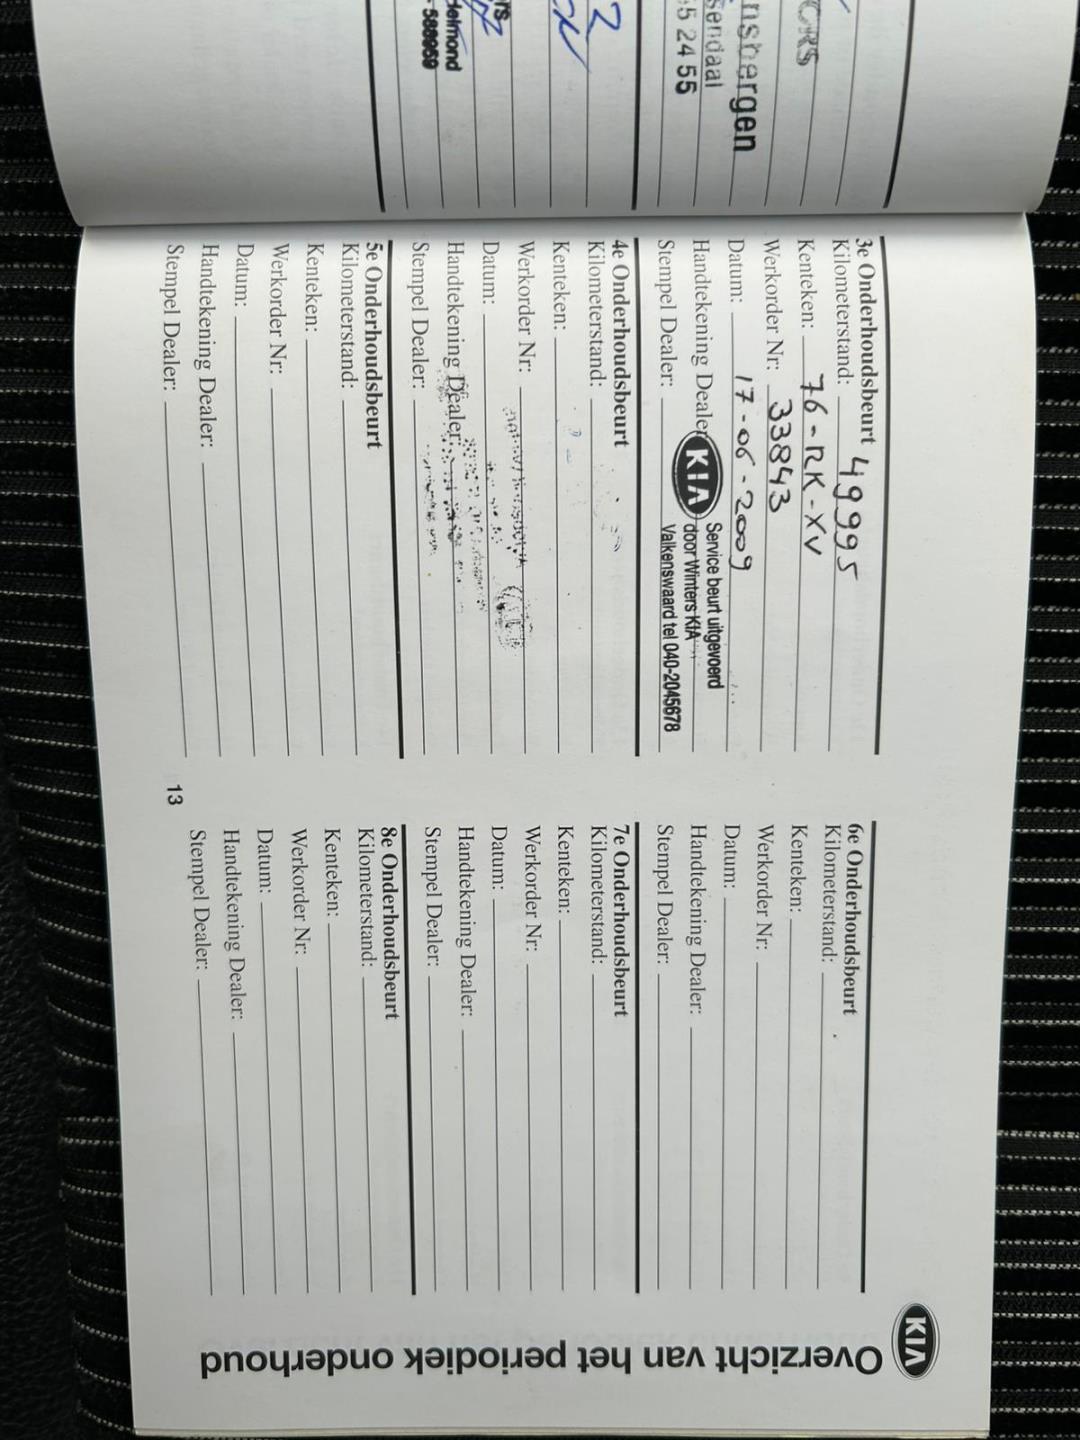 CRS
nsbergen
sendaal
5 24 55
2
rs
elmond
- 588969
KIA
Overzicht van het periodiek onderhoud
3e Onderhoudsbeurt
Kilometerstand: 49995
Kenteken: 76-RK-XV
Werkorder Nr: 33843
Datum: 17-06-2009
Handtekening Dealer:
Stempel Dealer:
KIA
Service beurt uitgevoerd
door Winters KIA
Valkenswaard tel 040-2045678
4e Onderhoudsbeurt
Kilometerstand:
Kenteken:
Werkorder Nr:
Datum:
Handtekening Dealer:
Stempel Dealer:
5e Onderhoudsbeurt
Kilometerstand:
Kenteken:
Werkorder Nr:
Datum:
Handtekening Dealer:
Stempel Dealer:
13
6e Onderhoudsbeurt
Kilometerstand:
Kenteken:
Werkorder Nr:
Datum:
Handtekening Dealer:
Stempel Dealer:
7e Onderhoudsbeurt
Kilometerstand:
Kenteken:
Werkorder Nr:
Datum:
Handtekening Dealer:
Stempel Dealer:
8e Onderhoudsbeurt
Kilometerstand:
Kenteken:
Werkorder Nr:
Datum:
Handtekening Dealer:
Stempel Dealer: